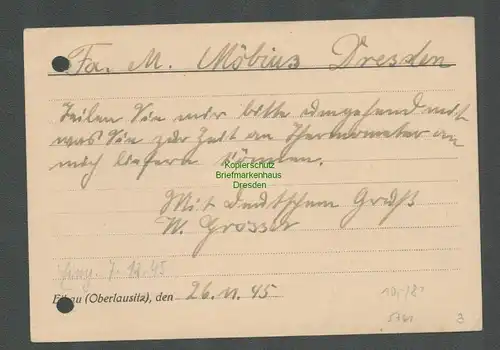 Fa. M. Möbius Dresden
Teilen Sie mir bitte umgehend mit
was Sie zur Zeit an Thermometer an
mich liefern können.
Kopierschutz
Briefmarkenhaus
Dresden
Mit deutschem Gruß
W. Grosser
7.12.45
(Oberlausitz), den 26.11.45
3